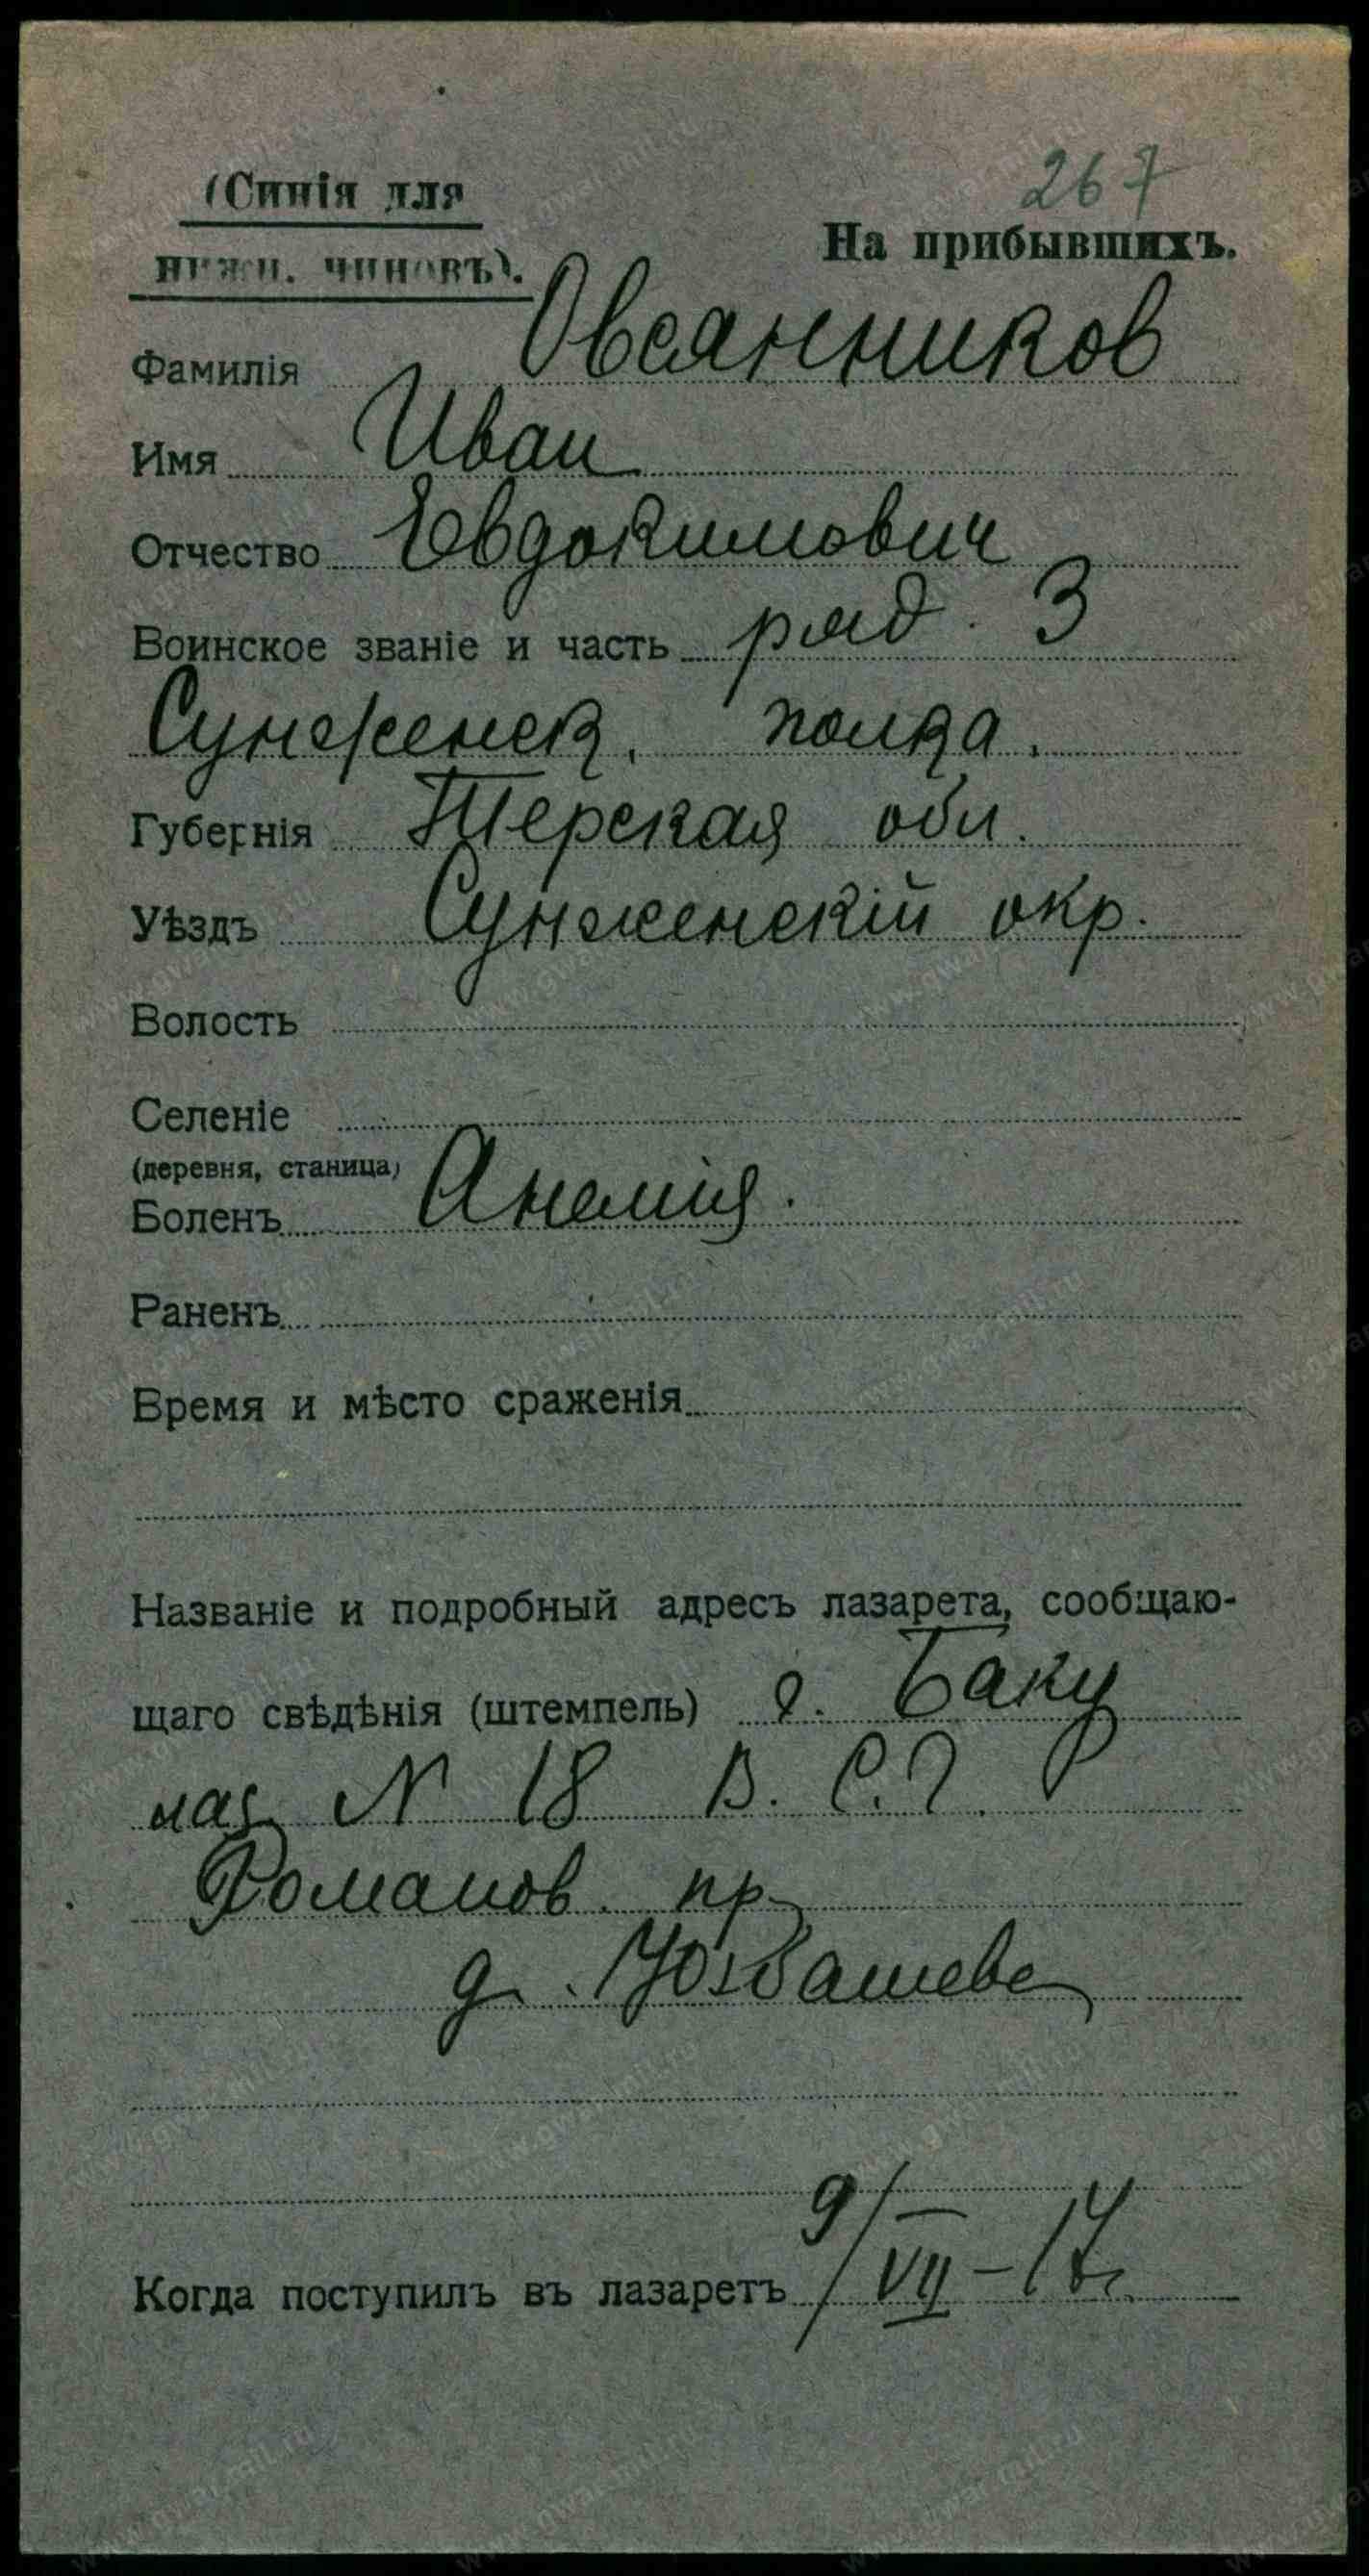 (Синія для
нижн. чиновъ).
267
На прибывшихъ.
Фамилія Овсянников
Имя Иван
Отчество Евдокимович
Воинское званіе и часть ряд. 3
Сунженск. полка.
Губернія Терская обл.
Уѣздъ Сунженскій окр.
Волость
Селеніе
(деревня, станица)
Боленъ Анемия.
Раненъ
Время и мѣсто сраженія
Названіе и подробный адресъ лазарета, сообщаю-
щаго свѣдѣнія (штемпель) г. Баку
лаз N 18 В. С. Г.
Романов. пр
д. Юзбашева
Когда поступилъ въ лазаретъ 9/VII-17г.
www.gwar.mil.ru